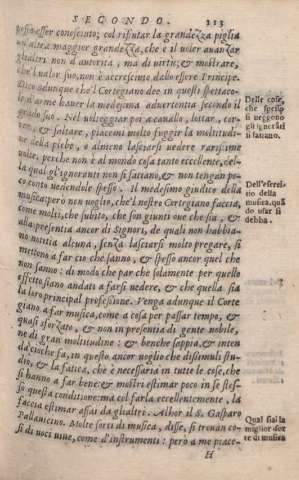 SECONDO. 113
possa esser conosciuto; col rifiutar la grandezza piglia
un'altra maggior grandezza, che è il voler auanzar
gli altri non d'autorità, ma di virtù; & mostrare,
che'l ualor suo, non è accresciuto dallo essere Principe.
Dico adunque che'l Cortegiano dee in questi spettaco-
li d'arme hauer la medesima aduertentia secondo il
grado suo. Nel uolteggiar poi a cauallo, lottar, cor-
rere, & saltare, piacemi molto fuggir la moltitudi-
ne della plebe, o almeno lasciarsi uedere rarissime
uolte, perche non è al mondo cosa tanto eccellente, del-
la qual gl'ignoranti non si satiano, & non tengan po-
co conto uedendole spesso. Il medesimo giudico della
musica: però non uoglio, che'l nostro Cortegiano faccia,
come molti, che subito, che son giunti oue che sia, &
alla presentia ancor di Signori, de quali non habbia-
no notitia alcuna, senza lasciarsi molto pregare, si
mettono a far cio che sanno, & spesso ancor quel che
non sanno: di modo che par che solamente per quello
effetto siano andati a farsi uedere, & che quella sia
la loro principal professione. Venga adunque il Corte
giano a far musica, come a cosa per passar tempo, &
quasi sforzato, & non in presentia di gente nobile,
ne di gran moltitudine: & benche sappia, & inten
da cioche fa, in questo ancor uoglio che dissimuli stu-
dio, & la fatica, che è necessaria in tutte le cose, che
si hanno a far bene: & mostri estimar poco in se stes-
so questa conditione: ma col farla eccellentemente, la
faccia estimar assai da gli altri. Alhor il S. Gasparo
Pallauicino. Molte sorti di musica, disse, si trouan co-
si di uoci uiue, come d'instrumenti: però a me piace-
H
Delle cose,
che spesso
si ueggono
gli ignorāti
si satiano.
Dell'eserci-
tio della
musica, quā
do usar si
debba.
Qual sia la
miglior sor
te di musica